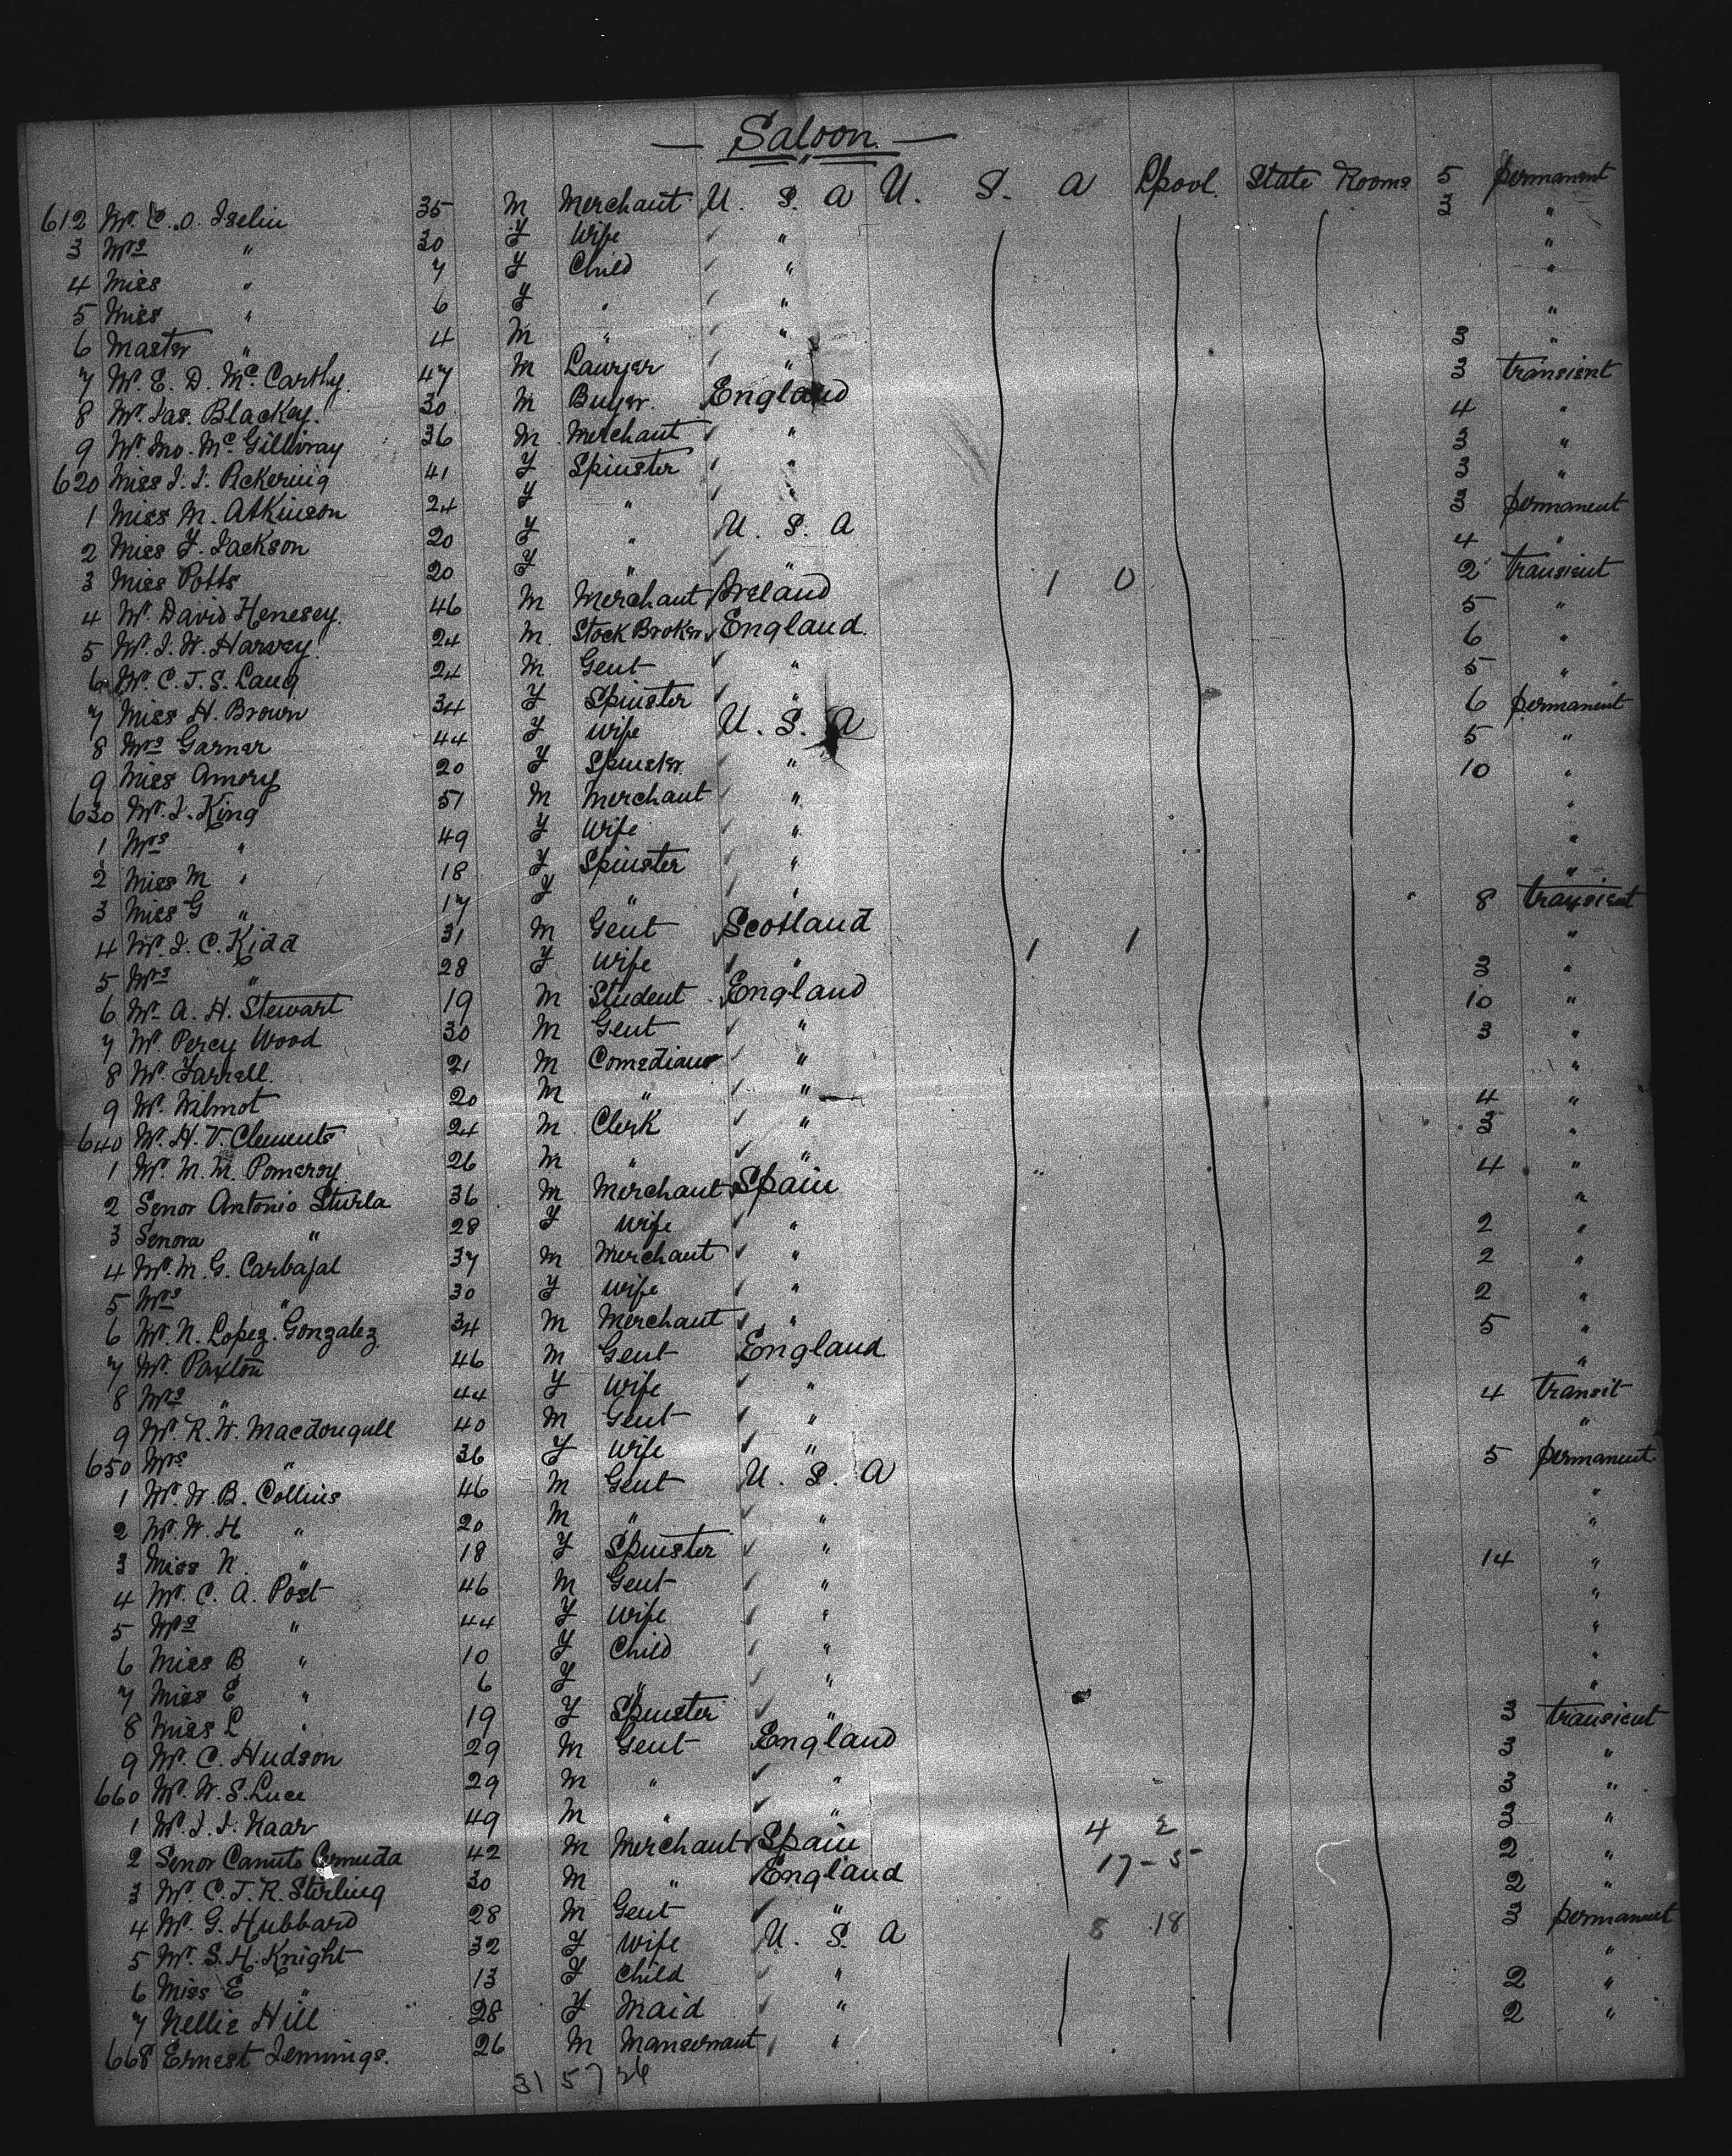 Saloon.
612 Mr. C. O. Iselin 35 M Merchant U. S. A U. S. A Lpool State Rooms 5 permanent
3 Mrs " 30 F Wife " 3 "
4 Miss " 7 F Child " "
5 Miss " 6 F " " "
6 Master " 4 M " " "
7 Mr. E. D. McCarthy. 47 M Lawyer " 3 "
8 Mr. Jas. Blackey. 30 M Buyer. England 3 transient
9 Mr. Jno. McGillivray 36 M Merchant " 4 "
620 Miss J. J. Pickering 41 F Spinster " 3 "
1 Miss M. Atkinson 24 F " " 3 "
2 Miss F. Jackson 20 F " U. S. A 3 permanent
3 Miss Potts 20 F " " 4 "
4 Mr. David Henesey. 46 M Merchant Ireland 1 0 2 transient
5 Mr. J. W. Harvey. 24 M. Stock Broker England. 5 "
6 Mr. C. J. S. Lang 24 M Gent " 6 "
7 Miss H. Brown 34 F Spinster " 5 "
8 Mrs Garner 44 F Wife U. S. A 6 permanent
9 Miss Amory 20 F Spinster. " 5 "
630 Mr. J. King 51 M Merchant " 10 "
1 Mrs " 49 F Wife " "
2 Miss M " 18 F Spinster " "
3 Miss G " 17 F " " "
4 Mr. J. C. Kidd 31 M Gent Scotland 1 1 8 transient
5 Mrs " 28 F Wife " "
6 Mr. A. H. Stewart 19 M Student England 3 "
7 Mr. Percy Wood 30 M Gent " 10 "
8 Mr. Farrell. 21 M Comedian " 3 "
9 Mr. Wilmot 20 M " " "
640 Mr. H. V. Clements 24 M Clerk " 4 "
1 Mr. M. M. Pomeroy 26 M " " 3 "
2 Senor Antonio Sturla 36 M Merchant Spain 4 "
3 Senora " 28 F Wife " "
4 Mr. M. G. Carbajal 37 M Merchant " 2 "
5 Mrs " 30 F Wife " 2 "
6 Mr. N. Lopez. Gonzalez 34 M Merchant " 2 "
7 Mr. Paxton 46 M Gent England 5 "
8 Mrs " 44 F Wife " "
9 Mr. R. W. Macdougall 40 M Gent " 4 transit
650 Mrs " 36 F Wife " "
1 Mr. W. B. Collins 46 M Gent U. S. A 5 permanent
2 Mr. W. H " 20 M " " "
3 Miss N. " 18 F Spinster " "
4 Mr. C. A. Post 46 M Gent " 14 "
5 Mrs " 44 F Wife " "
6 Miss B " 10 F Child " "
7 Miss E " 6 F " " "
8 Miss L " 19 F Spinster " "
9 Mr. C. Hudson 29 M Gent England 3 transient
660 Mr. W. S. Luce 29 M " " 3 "
1 Mr. J. J. Naar 49 M " " 3 "
2 Senor Canuto 42 M Merchant Spain 4 2 3 "
3 Mr. C. J. R. Stirling 30 M " England 17-5 2 "
4 Mr. G. Hubbard 28 M Gent " 2 "
5 Mr. S. H. Knight 32 F Wife U. S. A 8 18 3 permanent
6 Miss E " 13 F Child " "
7 Nellie Hill 28 F Maid " 2 "
668 Ernest Jennings. 26 M Manservant " 2 "
31 57 26